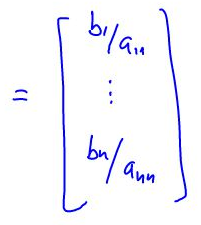 b₁/a₁₁
= ⋮
bₙ/aₙₙ